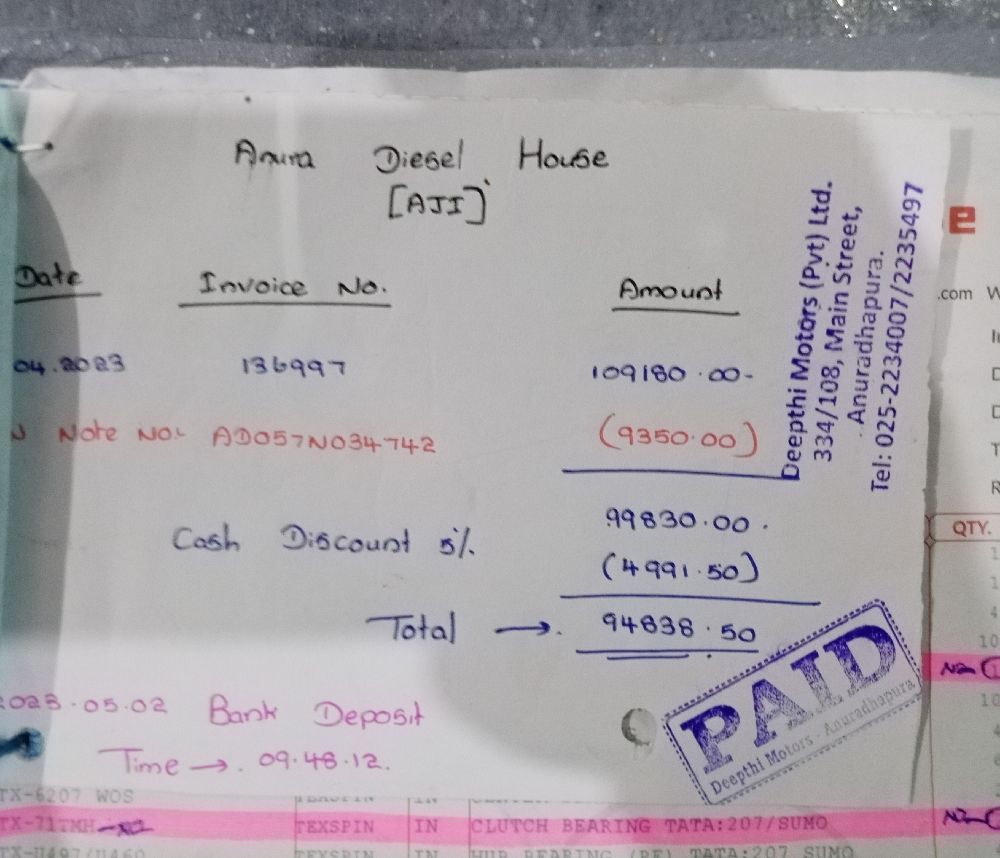 Anura Diesel House
[AJI]
Date Invoice No. Amount
04.2023 136997 109180.00-
Note No:- AD057N034742 (9350.00)
99830.00.
Cash Discount 5%.
(4991.50)
Total → 94838.50
2023.05.02 Bank Deposit
Time → 09.48.12.
Deepthi Motors (Pvt) Ltd.
334/108, Main Street,
Anuradhapura.
Tel: 025-2234007/2235497
PAID
Deepthi Motors - Anuradhapura
.com W
QTY.
TX-6207 WOS
TX-71TMH TEXSPIN IN CLUTCH BEARING TATA:207/SUMO
TEXSPIN IN HUB BEARING (RE) TATA:207 SUMO